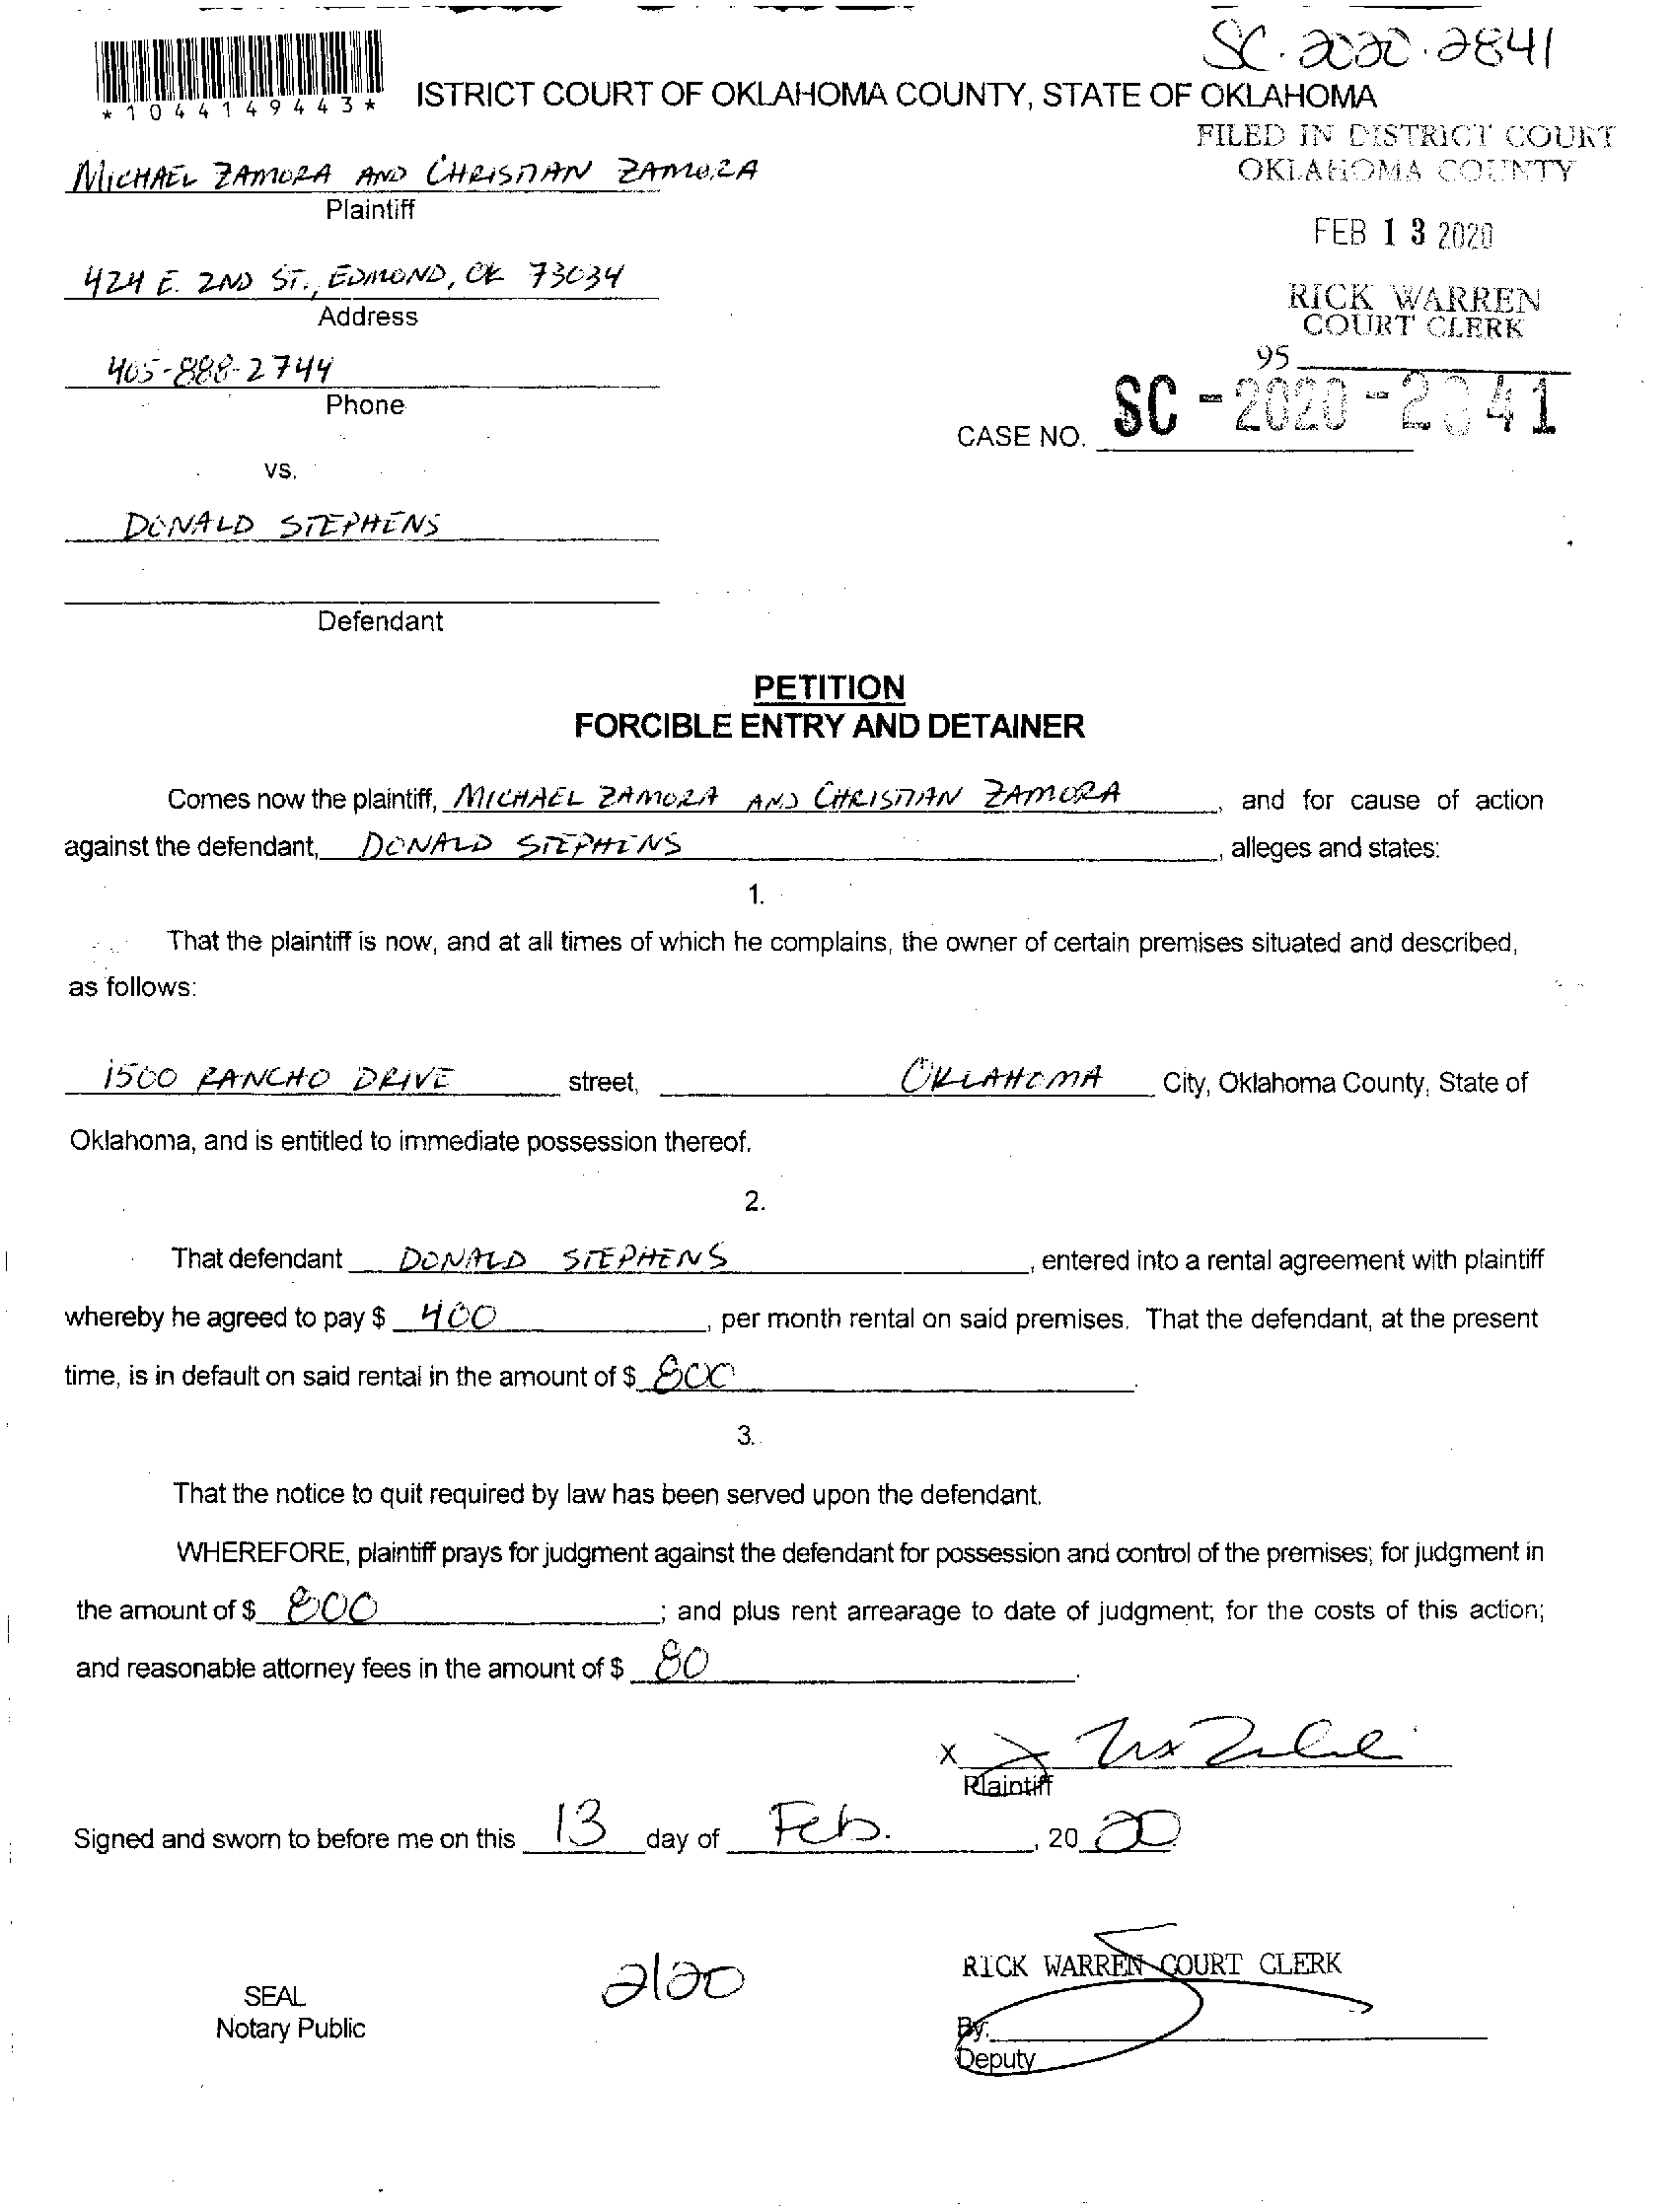 SC-2020-2841
*1044149443*
ISTRICT COURT OF OKLAHOMA COUNTY, STATE OF OKLAHOMA
FILED IN DISTRICT COURT
OKLAHOMA COUNTY
MICHAEL ZAMORA AND CHRISTIAN ZAMORA
Plaintiff
FEB 13 2020
424 E. 2ND ST., EDMOND, OK 73034
Address
RICK WARREN
COURT CLERK
405-888-2744
95
Phone
CASE NO. SC-2020-2841
vs.
DONALD STEPHENS
Defendant
PETITION
FORCIBLE ENTRY AND DETAINER
Comes now the plaintiff, MICHAEL ZAMORA AND CHRISTIAN ZAMORA, and for cause of action
against the defendant, DONALD STEPHENS, alleges and states:
1.
That the plaintiff is now, and at all times of which he complains, the owner of certain premises situated and described,
as follows:
1500 RANCHO DRIVE street, OKLAHOMA City, Oklahoma County, State of
Oklahoma, and is entitled to immediate possession thereof.
2.
That defendant DONALD STEPHENS, entered into a rental agreement with plaintiff
whereby he agreed to pay $ 400, per month rental on said premises. That the defendant, at the present
time, is in default on said rental in the amount of $ 800.
3.
That the notice to quit required by law has been served upon the defendant.
WHEREFORE, plaintiff prays for judgment against the defendant for possession and control of the premises; for judgment in
the amount of $ 800; and plus rent arrearage to date of judgment; for the costs of this action;
and reasonable attorney fees in the amount of $ 80.
X
Plaintiff
Signed and sworn to before me on this 13 day of Feb., 2020
RICK WARREN COURT CLERK
SEAL
Notary Public
By.
Deputy